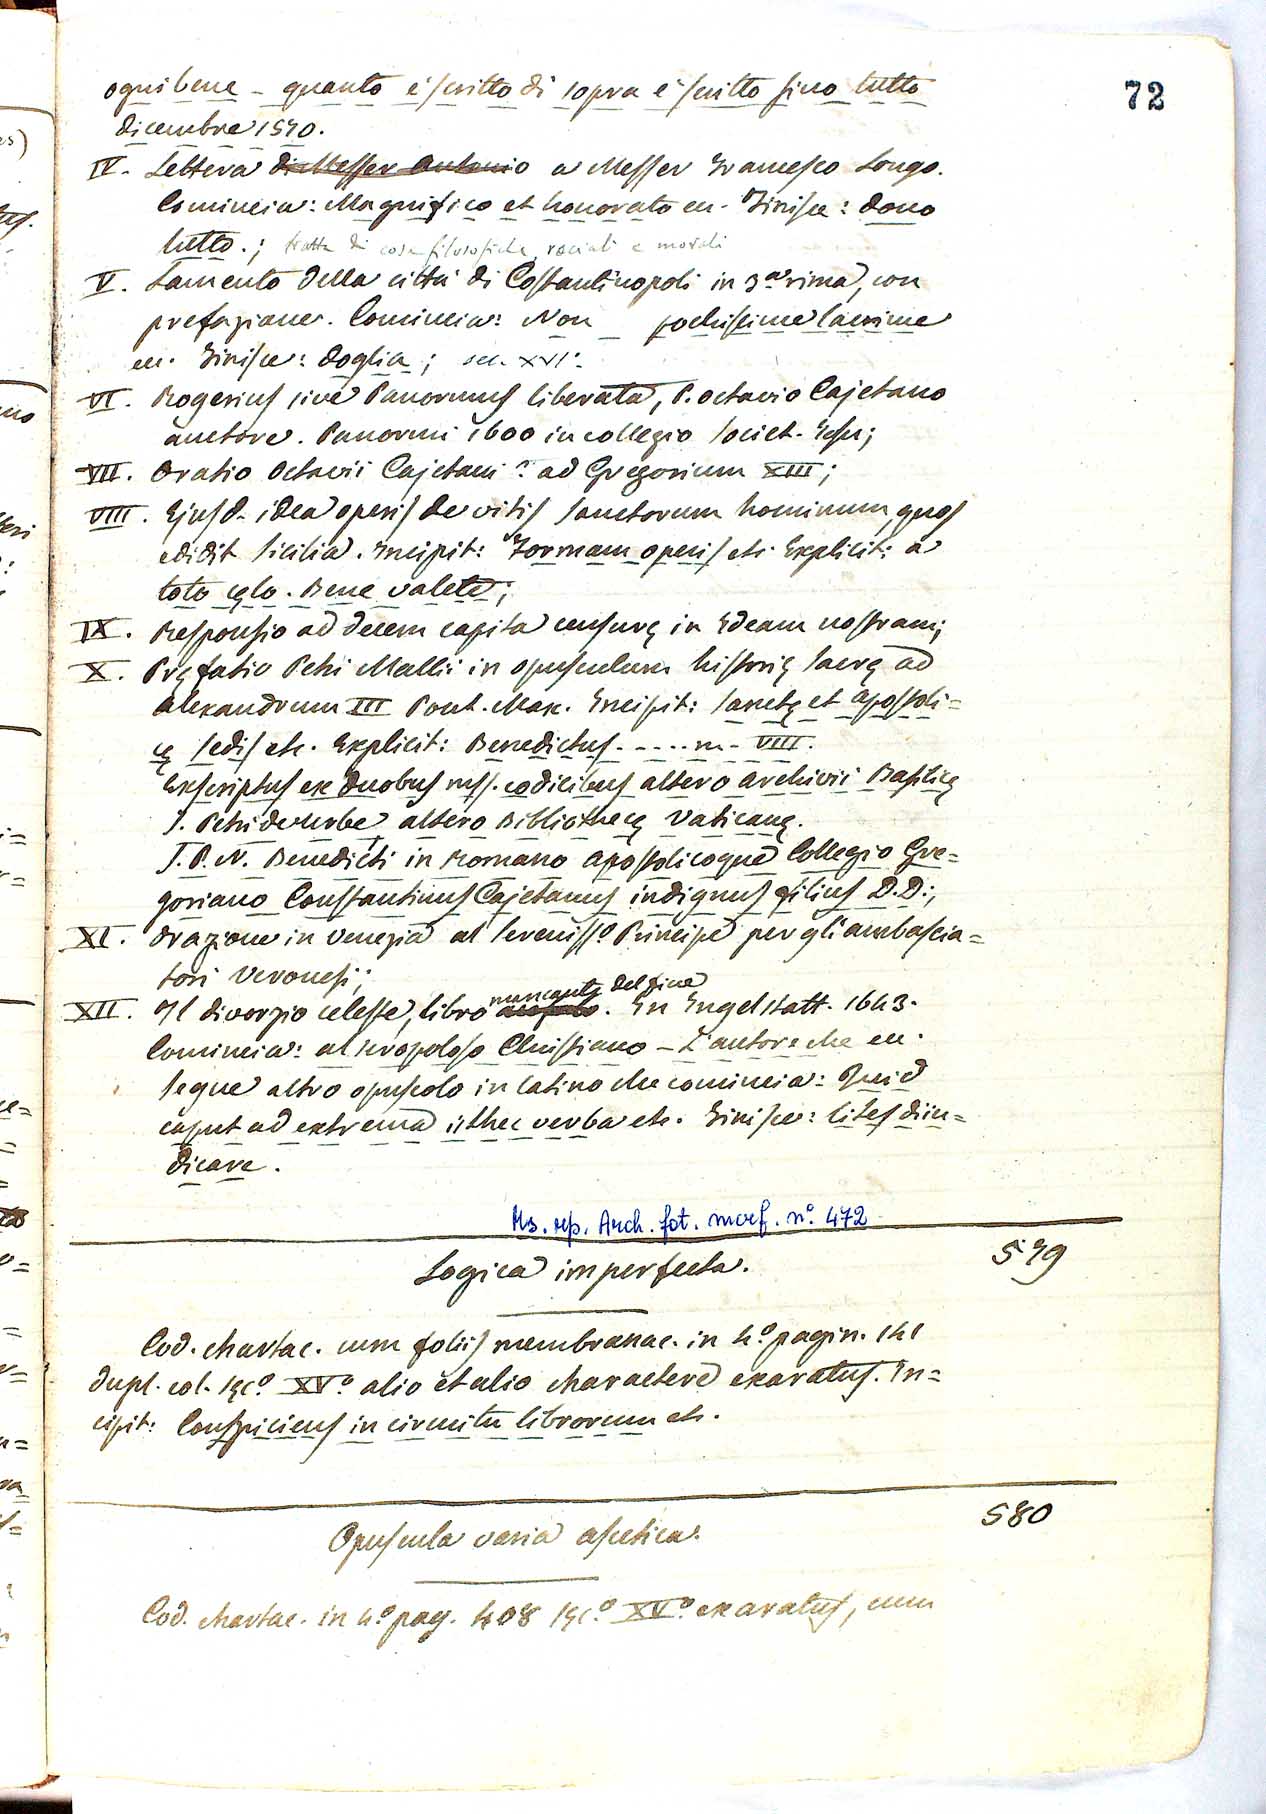 72
ognibene - quanto è scritto di sopra è scritto fino tutto
dicembre 1540.
IV. Lettera di Messer Antonio a Messer Francesco Longo.
Comincia: Magnifico et honorato ec. Finisce: dono
tutto.; tratta di cose filosofiche, sociali e morali
V. Lamento della città di Costantinopoli in 3ª rima, con
prefazione. Comincia: Non pochissime lacrime
ec. Finisce: doglia; sec. XVI.
VI. Rogerius sive Panormus liberata, P. octavio Cajetano
auctore. Panormi 1600 in collegio Societ. Jesu;
VII. Oratio Octavii Cajetani ad Gregorium XIII;
VIII. Ejusd. idea operis de vitis sanctorum hominum, quos
edidit Sicilia. Incipit: Formam operis etc. Explicit: a
toto cęlo. Bene valete;
IX. Responsio ad decem capita censurę in Ideam nostram;
X. Pręfatio Petri Mallii in opusculum historię sacrę ad
Alexandrum III Pont. Max. Incipit: Sanctę et Apostoli=
cę sedis etc. Explicit: Benedictus. . . . . m. VIII.
Exscriptus ex duobus mss. codicibus altero archivii Basilicę
S. Petri de Urbe, altero Bibliothecę Vaticanę.
S. P. N. Benedicti in Romano Apostolicoque Collegio Gre=
goriano Constantinus Cajetanus indignus filius D.D.;
XI. Orazione in Venezia al Serenissº Principe per gli ambascia=
tori Veronesi;
XII. Il divorzio celeste, libro mancante del fine. In Ingelstatt. 1643.
Comincia: al scropoloso Christiano - L'autore che ec.
segue altro opuscolo in latino che comincia: Quid
caput ad extrema isthec verba etc. Finisce: lites diiu=
dicare.
Ms. rip. Arch. fot. morf. nº 472
579
Logica imperfecta.
Cod. chartac. cum foliis membranac. in 4º pagin. 141
dupl. col. sęcº XVº alio et alio charactere exaratus. In=
cipit: Conspiciens in circuitu librorum etc.
580
Opuscula varia ascetica.
Cod. chartac. in 4º pag. 408 sęcº XVº exaratus, cum